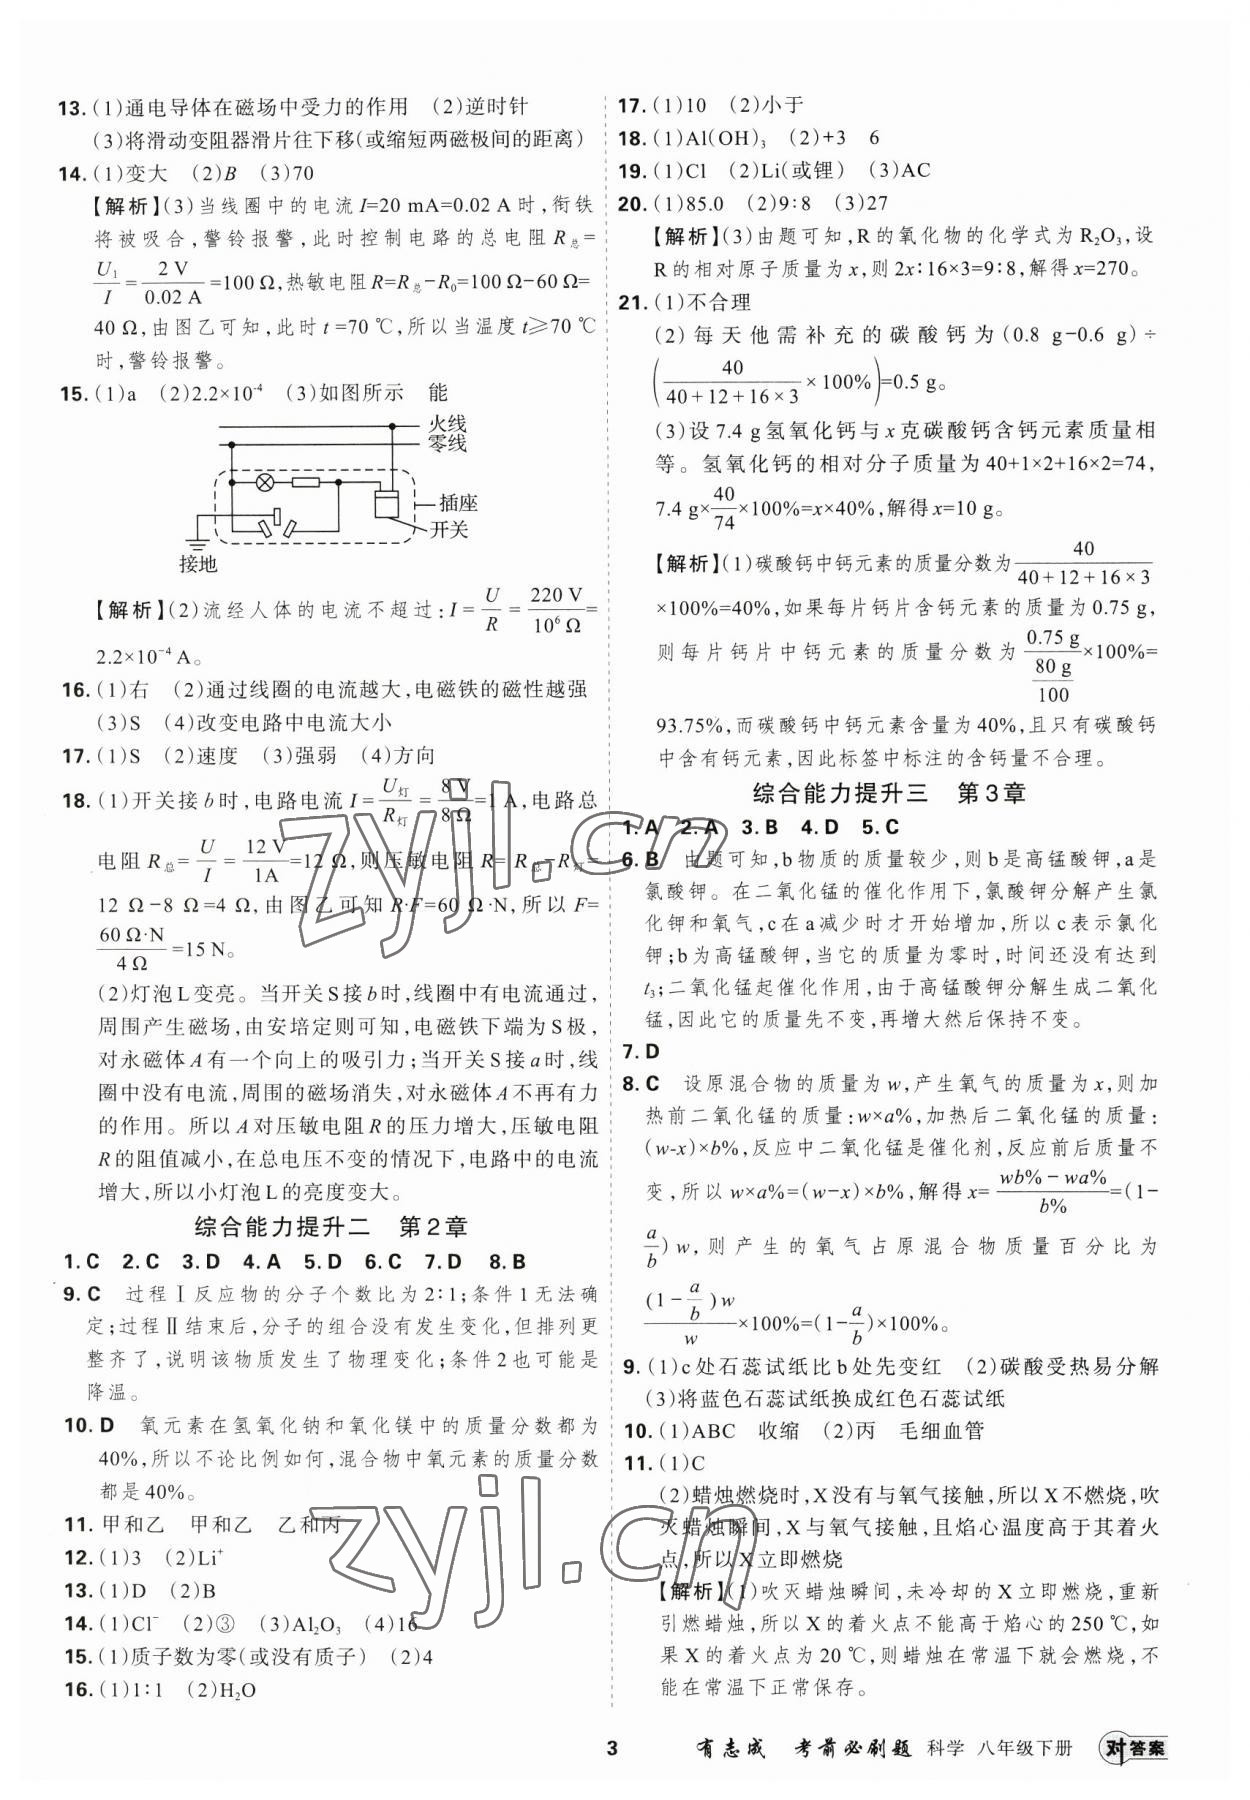 13. (1)通电导体在磁场中受力的作用　(2)逆时针
(3)将滑动变阻器滑片往下移(或缩短两磁极间的距离)
14. (1)变大　(2)B　(3)70
【解析】(3)当线圈中的电流I=20 mA=0.02 A时,衔铁
将被吸合,警铃报警,此时控制电路的总电阻R总=
U₁/I=2 V/0.02 A=100 Ω,热敏电阻R=R总-R₀=100 Ω-60 Ω=
40 Ω,由图乙可知,此时t=70 ℃,所以当温度t≥70 ℃
时,警铃报警。
15. (1)a　(2)2.2×10⁻⁴　(3)如图所示　能
火线
零线
插座
开关
接地
【解析】(2)流经人体的电流不超过:I=U/R=220 V/10⁶ Ω=
2.2×10⁻⁴ A。
16. (1)右　(2)通过线圈的电流越大,电磁铁的磁性越强
(3)S　(4)改变电路中电流大小
17. (1)S　(2)速度　(3)强弱　(4)方向
18. (1)开关接b时,电路电流I=U灯/R灯=8 V/8 Ω=1 A,电路总
电阻R总=U/I=12 V/1A=12 Ω,则压敏电阻R=R总-R灯=
12 Ω-8 Ω=4 Ω,由图乙可知R·F=60 Ω·N,所以F=
60 Ω·N/4 Ω=15 N。
(2)灯泡L变亮。当开关S接b时,线圈中有电流通过,
周围产生磁场,由安培定则可知,电磁铁下端为S极,
对永磁体A有一个向上的吸引力;当开关S接a时,线
圈中没有电流,周围的磁场消失,对永磁体A不再有力
的作用。所以A对压敏电阻R的压力增大,压敏电阻
R的阻值减小,在总电压不变的情况下,电路中的电流
增大,所以小灯泡L的亮度变大。
综合能力提升二　第2章
1. C　2. C　3. D　4. A　5. D　6. C　7. D　8. B
9. C　过程Ⅰ反应物的分子个数比为2:1;条件1无法确
定;过程Ⅱ结束后,分子的组合没有发生变化,但排列更
整齐了,说明该物质发生了物理变化;条件2也可能是
降温。
10. D　氧元素在氢氧化钠和氧化镁中的质量分数都为
40%,所以不论比例如何,混合物中氧元素的质量分数
都是40%。
11. 甲和乙　甲和乙　乙和丙
12. (1)3　(2)Li⁺
13. (1)D　(2)B
14. (1)Cl⁻　(2)③　(3)Al₂O₃　(4)16
15. (1)质子数为零(或没有质子)　(2)4
16. (1)1:1　(2)H₂O
17. (1)10　(2)小于
18. (1)Al(OH)₃　(2)+3　6
19. (1)Cl　(2)Li(或锂)　(3)AC
20. (1)85.0　(2)9:8　(3)27
【解析】(3)由题可知,R的氧化物的化学式为R₂O₃,设
R的相对原子质量为x,则2x:16×3=9:8,解得x=270。
21. (1)不合理
(2)每天他需补充的碳酸钙为(0.8 g-0.6 g)÷
(40/(40+12+16×3)×100%)=0.5 g。
(3)设7.4 g氢氧化钙与x克碳酸钙含钙元素质量相
等。氢氧化钙的相对分子质量为40+1×2+16×2=74,
7.4 g×40/74×100%=x×40%,解得x=10 g。
【解析】(1)碳酸钙中钙元素的质量分数为40/(40+12+16×3)
×100%=40%,如果每片钙片含钙元素的质量为0.75 g,
则每片钙片中钙元素的质量分数为0.75 g/(80 g/100)×100%=
93.75%,而碳酸钙中钙元素含量为40%,且只有碳酸钙
中含有钙元素,因此标签中标注的含钙量不合理。
综合能力提升三　第3章
1. A　2. A　3. B　4. D　5. C
6. B　由题可知,b物质的质量较少,则b是高锰酸钾,a是
氯酸钾。在二氧化锰的催化作用下,氯酸钾分解产生氯
化钾和氧气,c在a减少时才开始增加,所以c表示氯化
钾;b为高锰酸钾,当它的质量为零时,时间还没有达到
t₃;二氧化锰起催化作用,由于高锰酸钾分解生成二氧化
锰,因此它的质量先不变,再增大然后保持不变。
7. D
8. C　设原混合物的质量为w,产生氧气的质量为x,则加
热前二氧化锰的质量:w×a%,加热后二氧化锰的质量:
(w-x)×b%,反应中二氧化锰是催化剂,反应前后质量不
变,所以w×a%=(w-x)×b%,解得x=(wb%-wa%)/b%=(1-
a/b)w,则产生的氧气占原混合物质量百分比为
(1-a/b)w/w×100%=(1-a/b)×100%。
9. (1)c处石蕊试纸比b处先变红　(2)碳酸受热易分解
(3)将蓝色石蕊试纸换成红色石蕊试纸
10. (1)ABC　收缩　(2)丙　毛细血管
11. (1)C
(2)蜡烛燃烧时,X没有与氧气接触,所以X不燃烧,吹
灭蜡烛瞬间,X与氧气接触,且焰心温度高于其着火
点,所以X立即燃烧
【解析】(1)吹灭蜡烛瞬间,未冷却的X立即燃烧,重新
引燃蜡烛,所以X的着火点不能高于焰心的250 ℃,如
果X的着火点为20 ℃,则蜡烛在常温下就会燃烧,不
能在常温下正常保存。
3　有志成　考前必刷题　科学　八年级下册　对答案
zyjl.cn
zyjl.cn